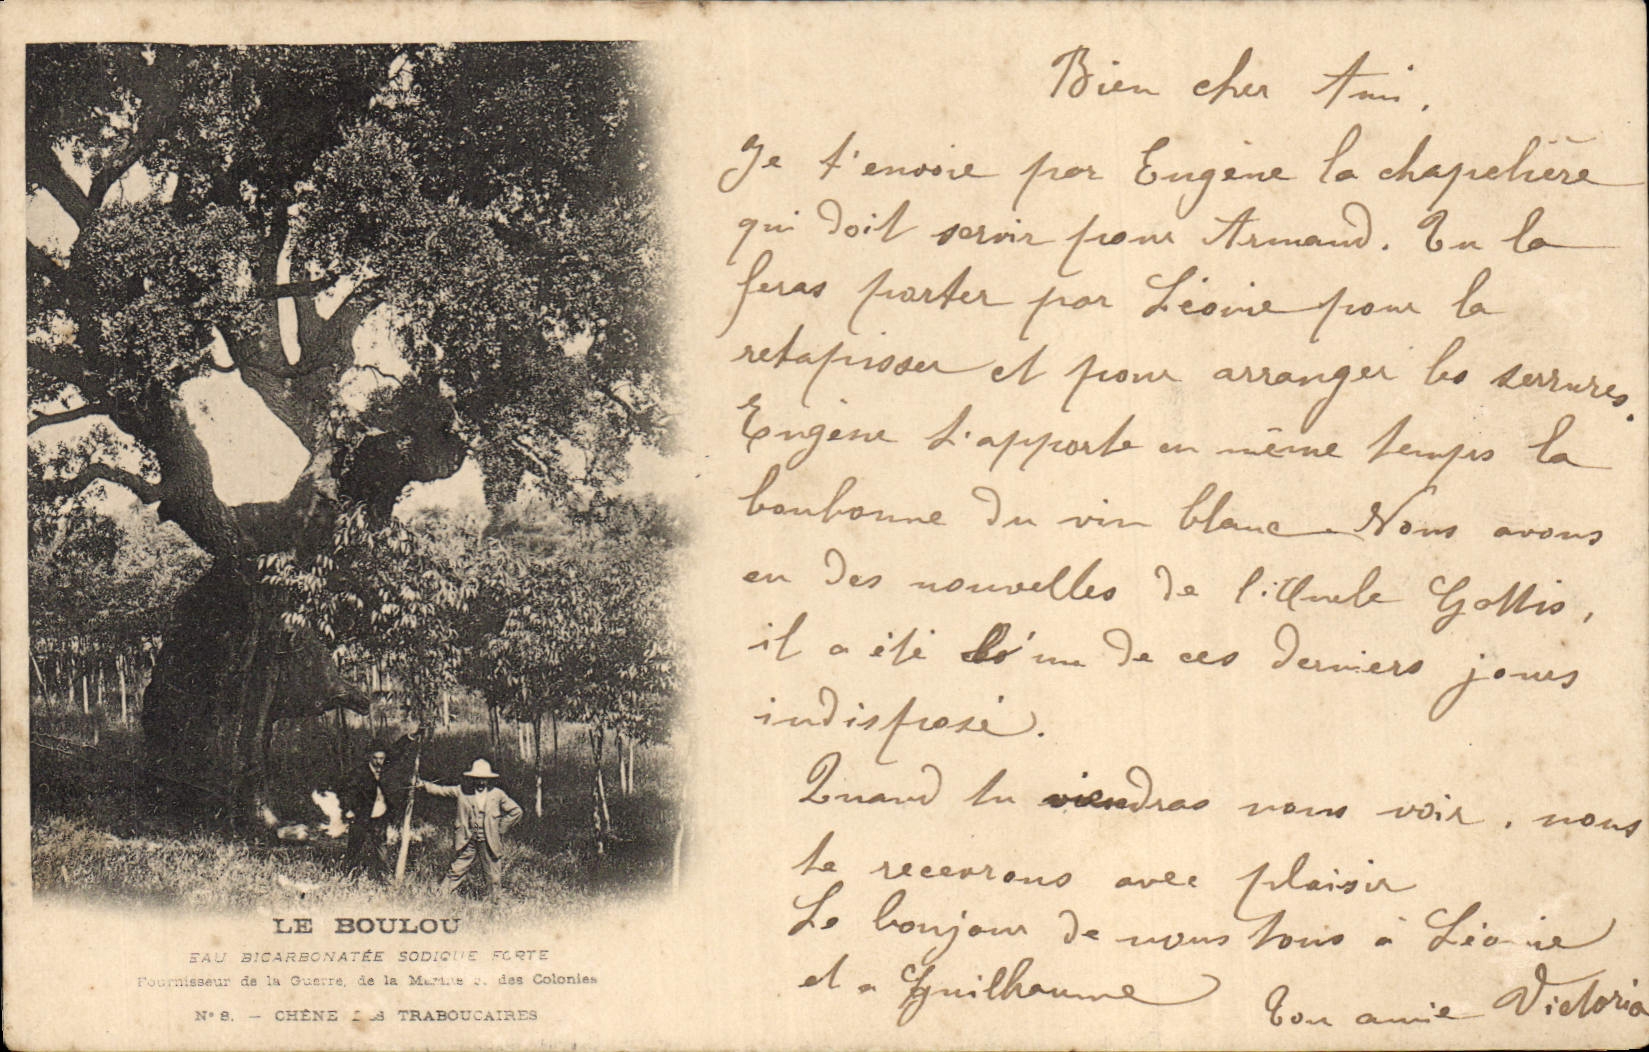 Bien cher Ami.
Je t'envoie par Eugène la chapelière
qui doit servir pour Armand. Tu la
feras porter par Léonie pour la
retapisser et pour arranger les serrures.
Eugène t'apporte en même temps la
bonbonne du vin blanc. Nous avons
eu des nouvelles de l'Oncle
il a été de ces derniers jours
indisposé.
Quand tu viendras nous voir, nous
te recevrons avec plaisir
Le bonjour de nous tous à Léonie
et a Guilhaume
Ton amie Victoria
LE BOULOU
EAU BICARBONATÉE SODIQUE FORTE
Fournisseur de la Guerre, de la Marine & des Colonies
N° 8. — CHÊNE DES TRABOUCAIRES